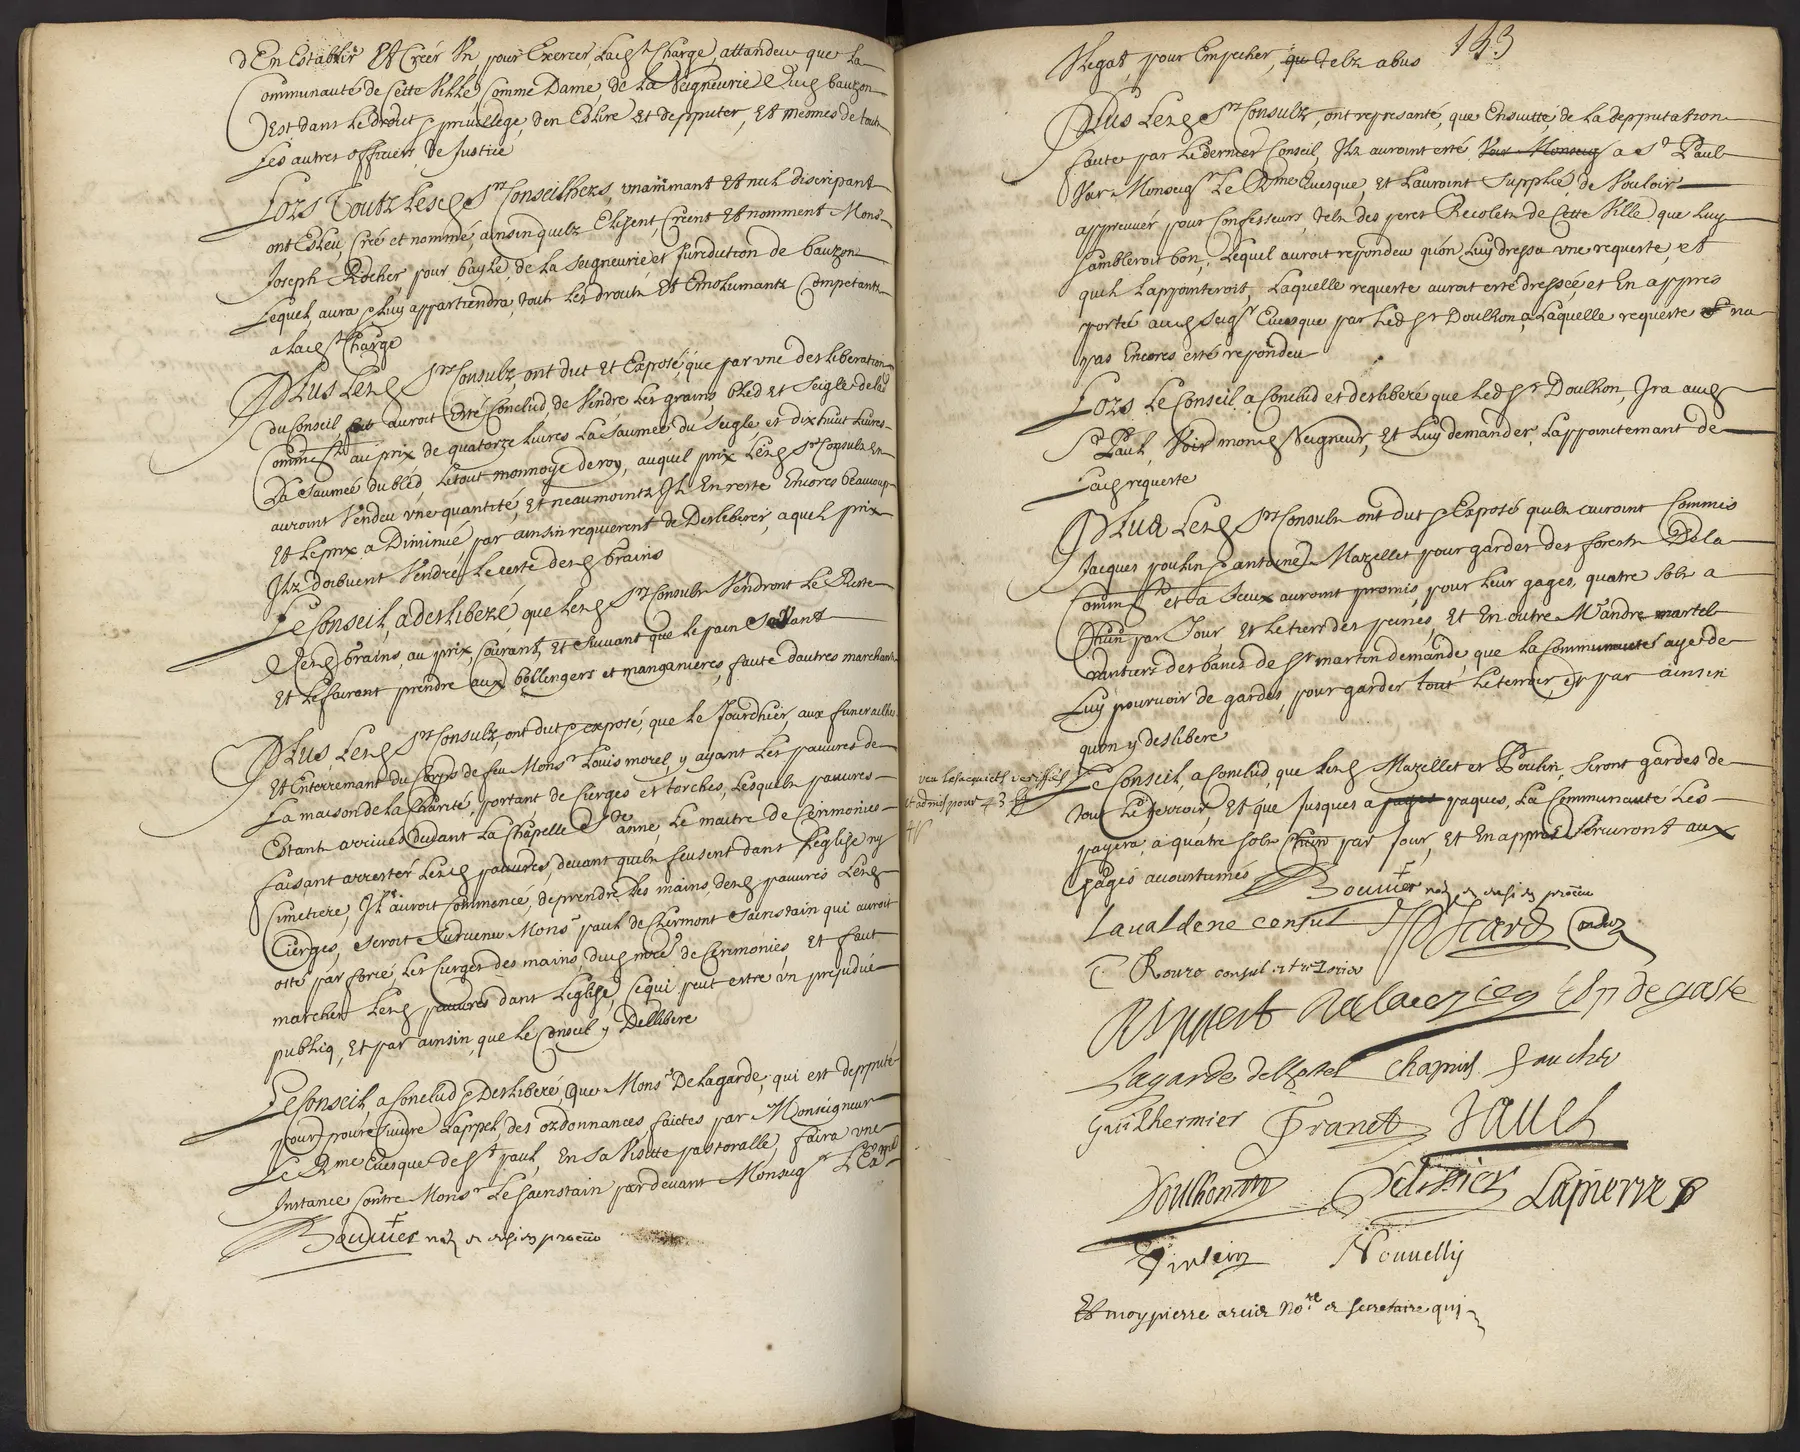 d'En Establir Et Créer Un, pour Exercer, Lad Charge, attandeu que La
Communauté de Cette Ville, Comme Dame, de La Seigneurie de bauzon
Est, dans le droit & privillege, d'en Eslire Et depputer, Et mesmes de tous
Les autres officiers, de Justice
Lors Toutz Lesd srs Conseilhers, unanimmant Et nul discripant
ont Esleu, Créé et nommé, ainsin quilz Elisent, Créent Et nomment Monsr
Joseph Rocher, pour bayle, de La Seigneurie et Juridiction de bauzon
Lequel, aura & Luy appartiendra, toutz Les droitz Et Emolumantz Competantz
a Lad Charge
Plus Lesd srs Consulz, ont dict Et Exposé, que par une desliberation
du Conseil auroit Esté Conclud, de Vendre Les grains, bled et Seigle de lad
Commté au prix de quatorze livres La Saumée du Seigle, et dix huit Livres
La Saumée du bled, Le tout monnoye de roy, auquel prix Lesd srs Consulz En
auroint Vendeu une quantité, Et neaumointz Il En reste Encores beaucoup
Et Le prix a Diminué, par ainsin requierent de Desliberer, a quel prix
Ilz doibvent Vendre, Le reste desd grains
Le Conseil, a deslibezé que Lesd srs Consulz Vendront Le Reste
Desd grains, au prix, Courant, Et Suivant que le pain
Et Le fairont prendre aux bollengers et manganieres, faute dautres marchans
Plus, Lesd srs Consulz, ont dict & exposé, que le Jourdhier, aux funerailhes
Et Enterremant du Corps de feu Monsr Louis morel, y ayant Les pauvres de
La maison de la Charité, portant de Cierges et torches, Lesquelz pauvres
Estantz arrivés devant La Chapelle Ste anne, Le maitre de Cérimonies
faisant arrester Lesd pauvres, devant quilz feusent dans L'eglise ny
Cimetiere, Il auroit Commencé, de prendre Les mains, desd pauvres Lesd
Cierges, Seroit Survenu Monsr paul de Clermont Sainstain qui auroit
osté par force, Les Cierges des mains, dud mre de Cerimonies, Et faut
marcher Lesd pauvres dans L'eglise, Ce qui peut estre un prejudice
publiq, Et par ainsin, que Le Conseil y Dellibere
Le Conseil, a Conclud & Deslibezé, Que Monsr De Lagarde, qui est depputé
pour poursuivre L'appel, des ordonnances faictes par Monseigneur
Le Rme Evesque de St paul, En Sa Visitte pastoralle, faira une
Instance Contre Monsr Le Sainstain pardevant Monseigr
Bouvier
143
Vlegat, pour Empecher, que telz abus
Plus Lesd srs Consulz, ont represanté, que Ensuitte, de La depputation
faite par Le dernier Conseil, Ilz auroint esté Voir Monseig a St Paul
Voir Monseigr Le Rme Evesque, Et Lauroint Supplié, de Vouloir
appreuver pour Confesseurs, telz des peres Recoletz de Cette Ville, que Luy
sambleroit bon, Lequel auroit respondeu qu'on Luy dressa une requeste, et
quil L'appointeroit, Laquelle requeste auroit esté dressée, et En appres
portée aud Seigr Evesque par Led sr Doulhon, a Laquelle requeste na
pas Encores esté respondeu
Lors Le Conseil a Conclud et deslibéré que Led sr Doulhon, Ira aud
St Paul, Voir mond Seigneur, Et Luy demander, L'appoinctemant de
Lad requeste
Plus Lesd srs Consulz ont dict & Exposé quilz auroint Commis
Jacques poulin & antoine Mazellet pour gardes des forestz De La
Commté et a Iceux auroint promis, pour Leur gages, quatre Solz a
Chun par Jour, Et Le tiers des peines, Et En outre Mr andre martel
rantiers des bancs de St martin demande, que La Communauté aye de
Luy pourvoir de gardes, pour garder tout Le terroir, Et par ainsin
quon y deslibere
Le Conseil, a Conclud, que Lesd Mazellet et Poulin, Seront gardes de
tout Le terroir, Et que Jusques a pages paques, La Communauté Les
payera, a quatre Solz Chun par Jour, Et En appres Serviront aux
gages acoustumés
Bouvier
Lavaldene consul
Consul
C Rouro consul et trezorier
de gaste
Lagarde delhostel Chapuis Faucher
Guilhermier Granet Fauch
Doulhon Pelissier Lapierre
Nouvelly
Et moy pierre arcier Nore & secretaire qui